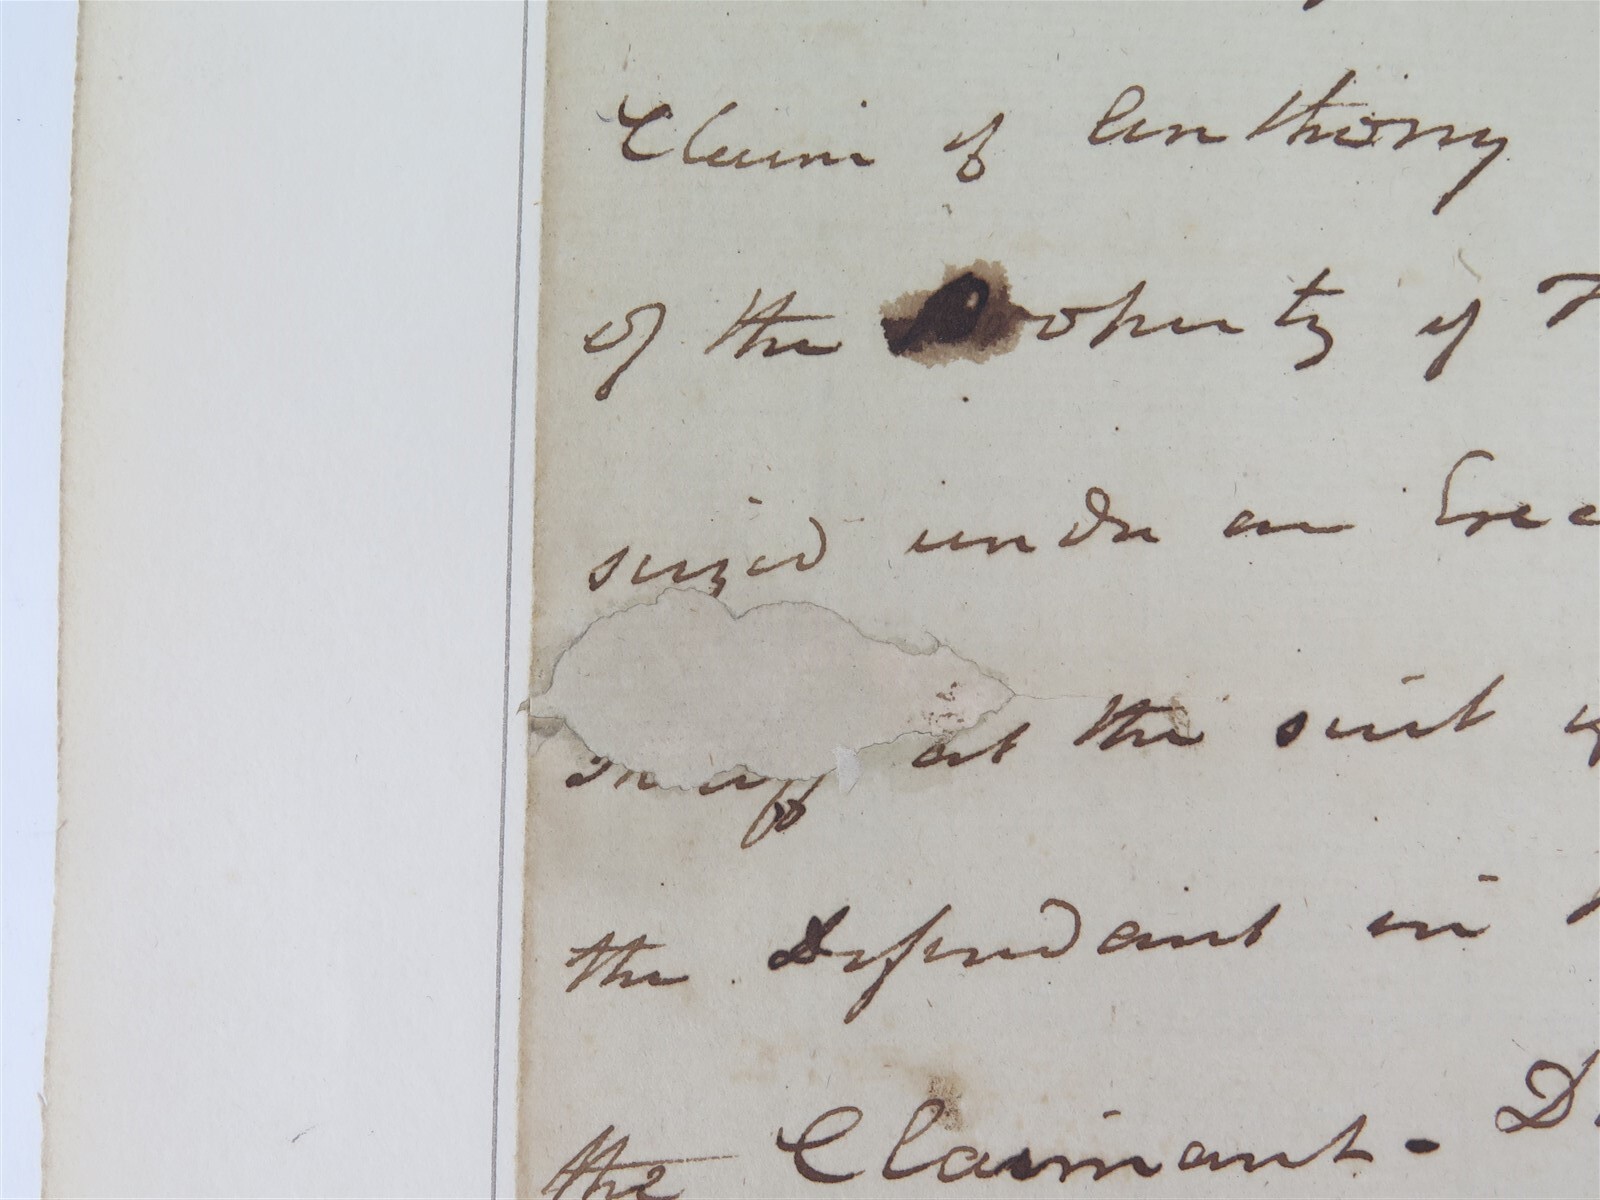 Claim of Anthony
of the Property of
seized under an Exec
at the suit of
the Defendant in
the Claimant -